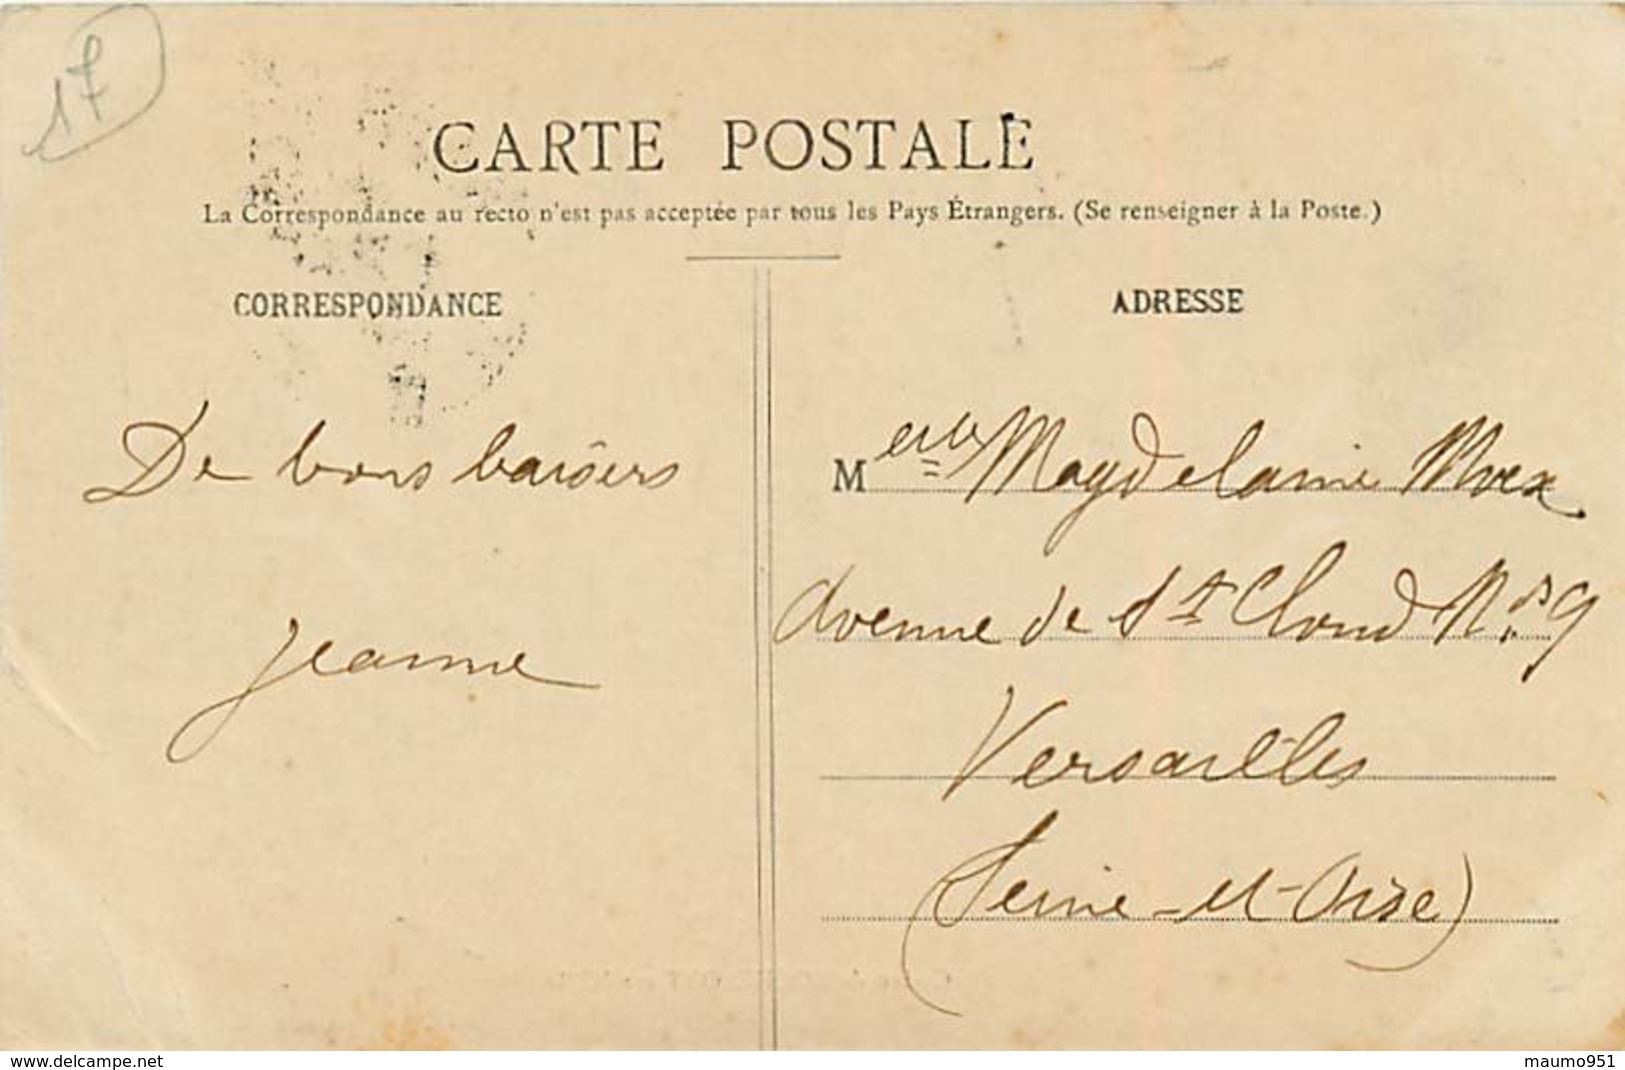 17
CARTE POSTALE
La Correspondance au recto n'est pas acceptée par tous les Pays Étrangers. (Se renseigner à la Poste.)
CORRESPONDANCE
De bons baisers
Jeanne
ADRESSE
Melle Magdelaine
Avenue de St Cloud N° 39
Versailles
(Seine-et-Oise)
www.delcampe.net
maumo951